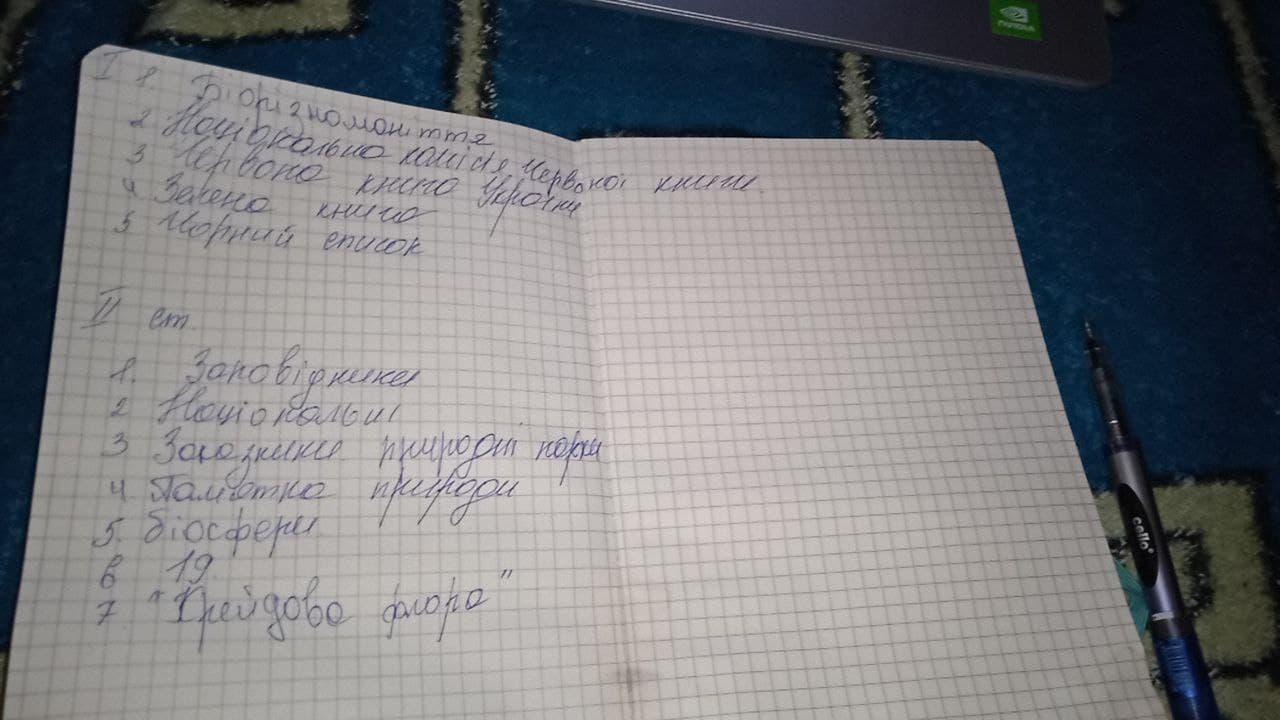 NVIDIA
I 1. Біорізноманіття
2 Національна комісія Червоної книги.
3 Червона книга України
4 Зелена книга
5 Чорний список
II ст
1. Заповідники
2 Національні
3 Заказники природні парки
4 Памятка природи
5. біосфери
6 19
7 "Крейдова флора"
cello